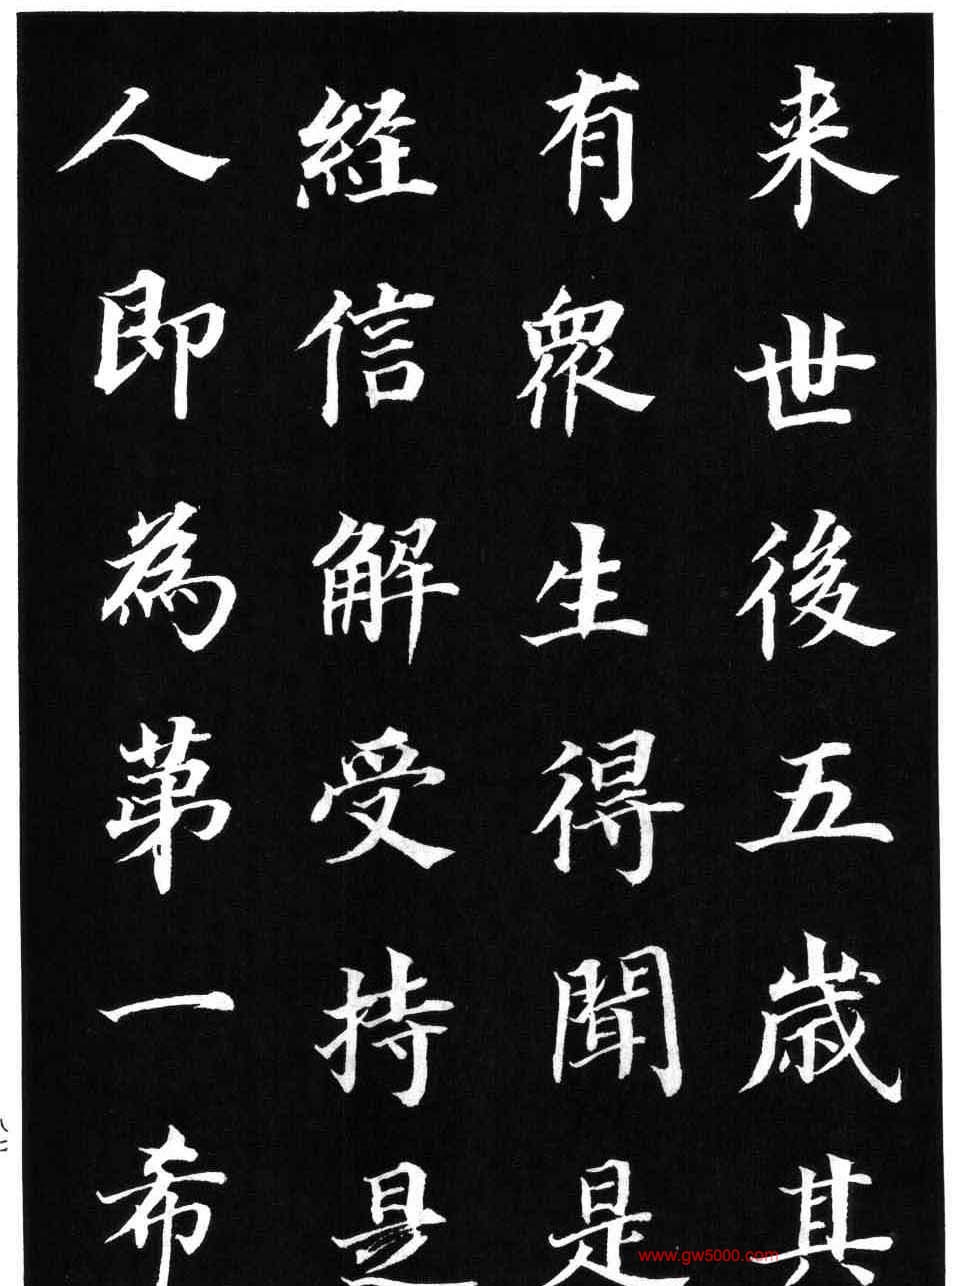 来世後五歲其
有眾生得聞是
經信解受持是
人即為苐一希
八七
www.gw5000.com